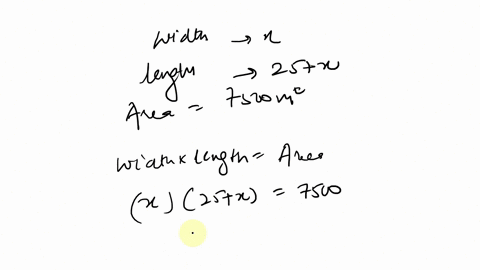 width → x
lengh → 25+x
Area = 7500 m²
width x length = Area
(x) (25+x) = 7500